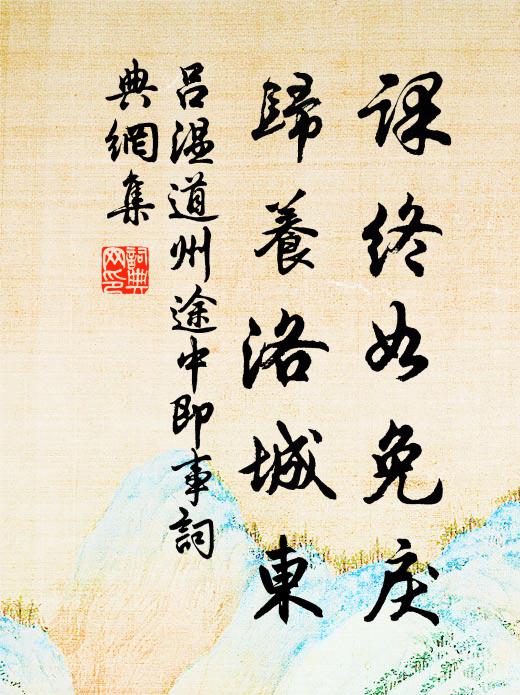 課終如免戾
歸養洛城東
呂溫道州途中即事詞
典網集
詞典
网印